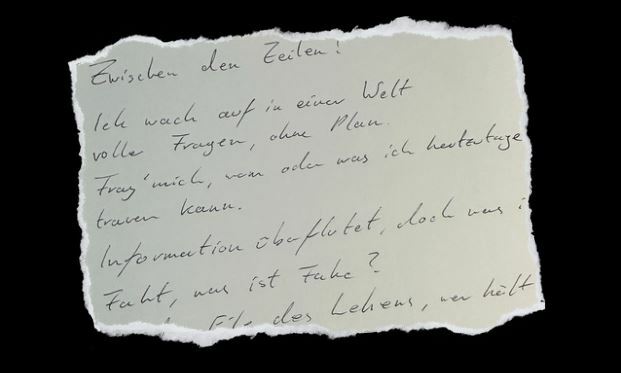 Zwischen den Zeilen!
Ich wach auf in einer Welt
voller Fragen, ohne Plan.
Frag' mich, wem oder was ich heutzutage
trauen kann.
Information überflutet, doch was
Fakt, was ist Fake?
Eile des Lebens, wer hält